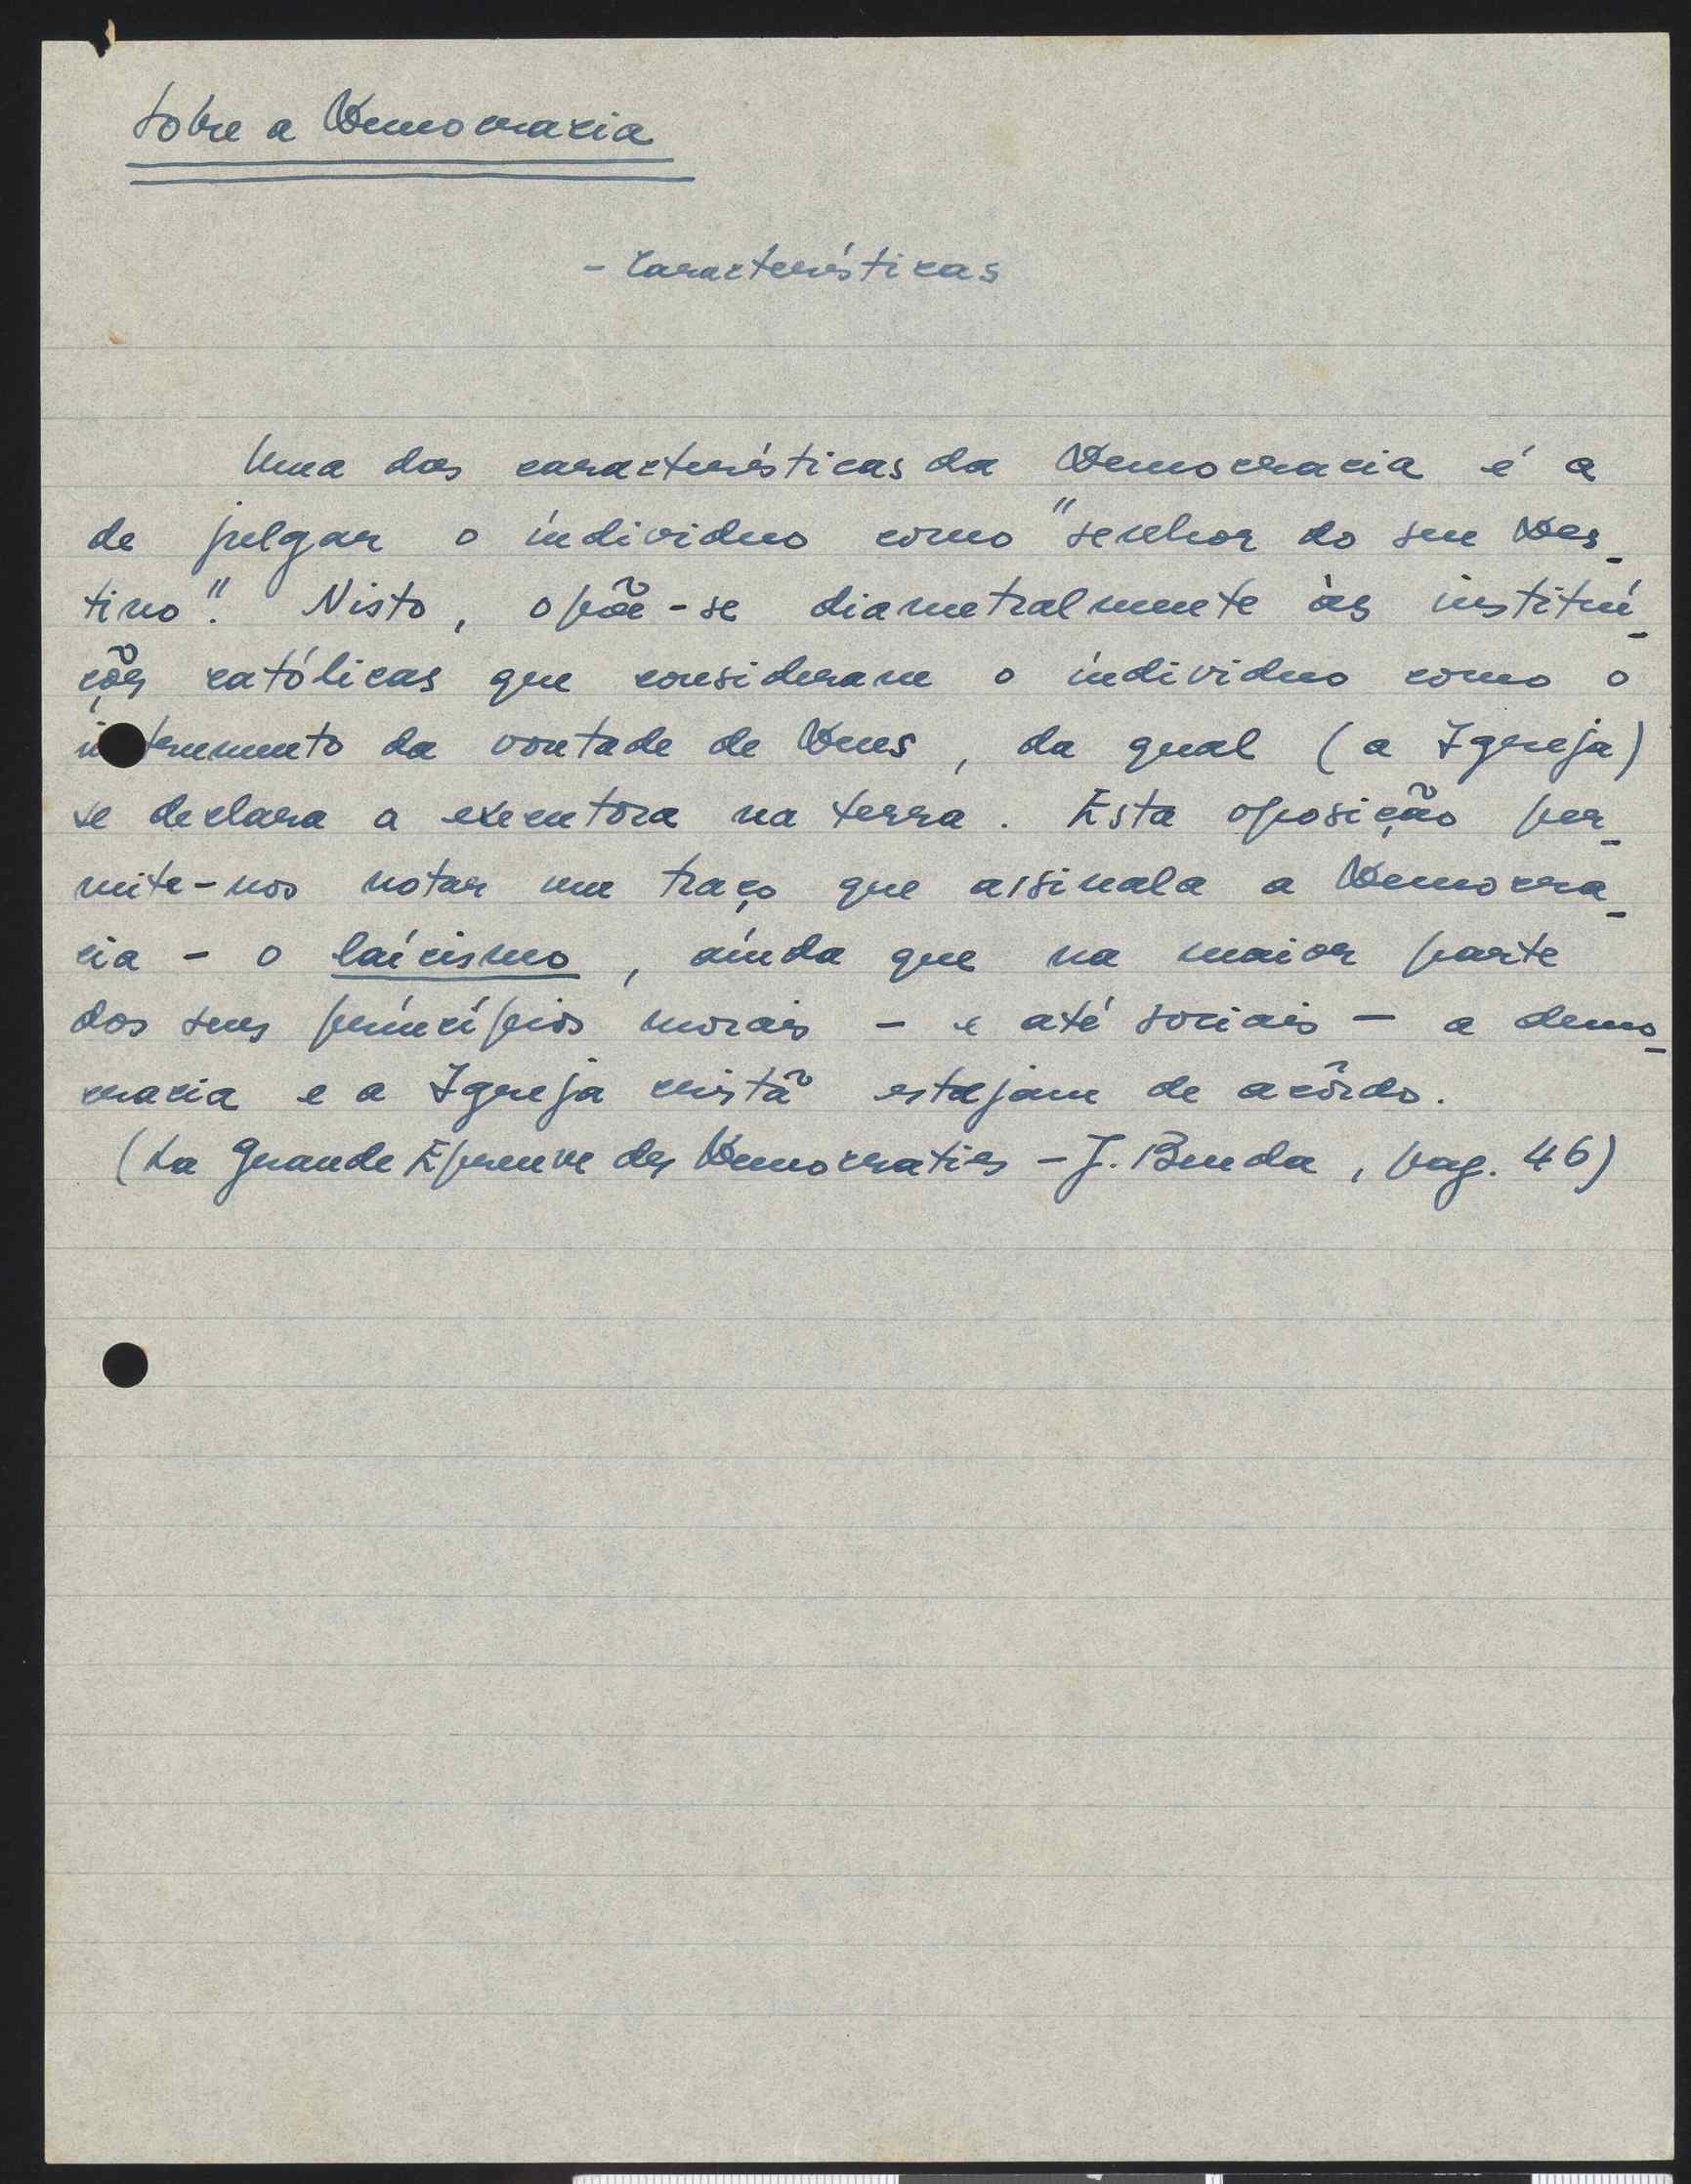 Sobre a Democracia
- Características
Uma das características da Democracia é a
de julgar o indivíduo como "senhor do seu Des-
tino". Nisto, opõe-se diametralmente às institui-
ções católicas que consideram o indivíduo como o
da vontade de Deus, da qual (a Igreja)
se declara a executora na terra. Esta oposição per-
mite-nos notar um traço que assinala a Democra-
cia - o laícismo, aínda que na maior parte
dos seus princípios morais - e até sociais - a demo-
cracia e a Igreja cristã estejam de acôrdo.
(La Grande Epreuve des Democraties - J. Benda, pag. 46)